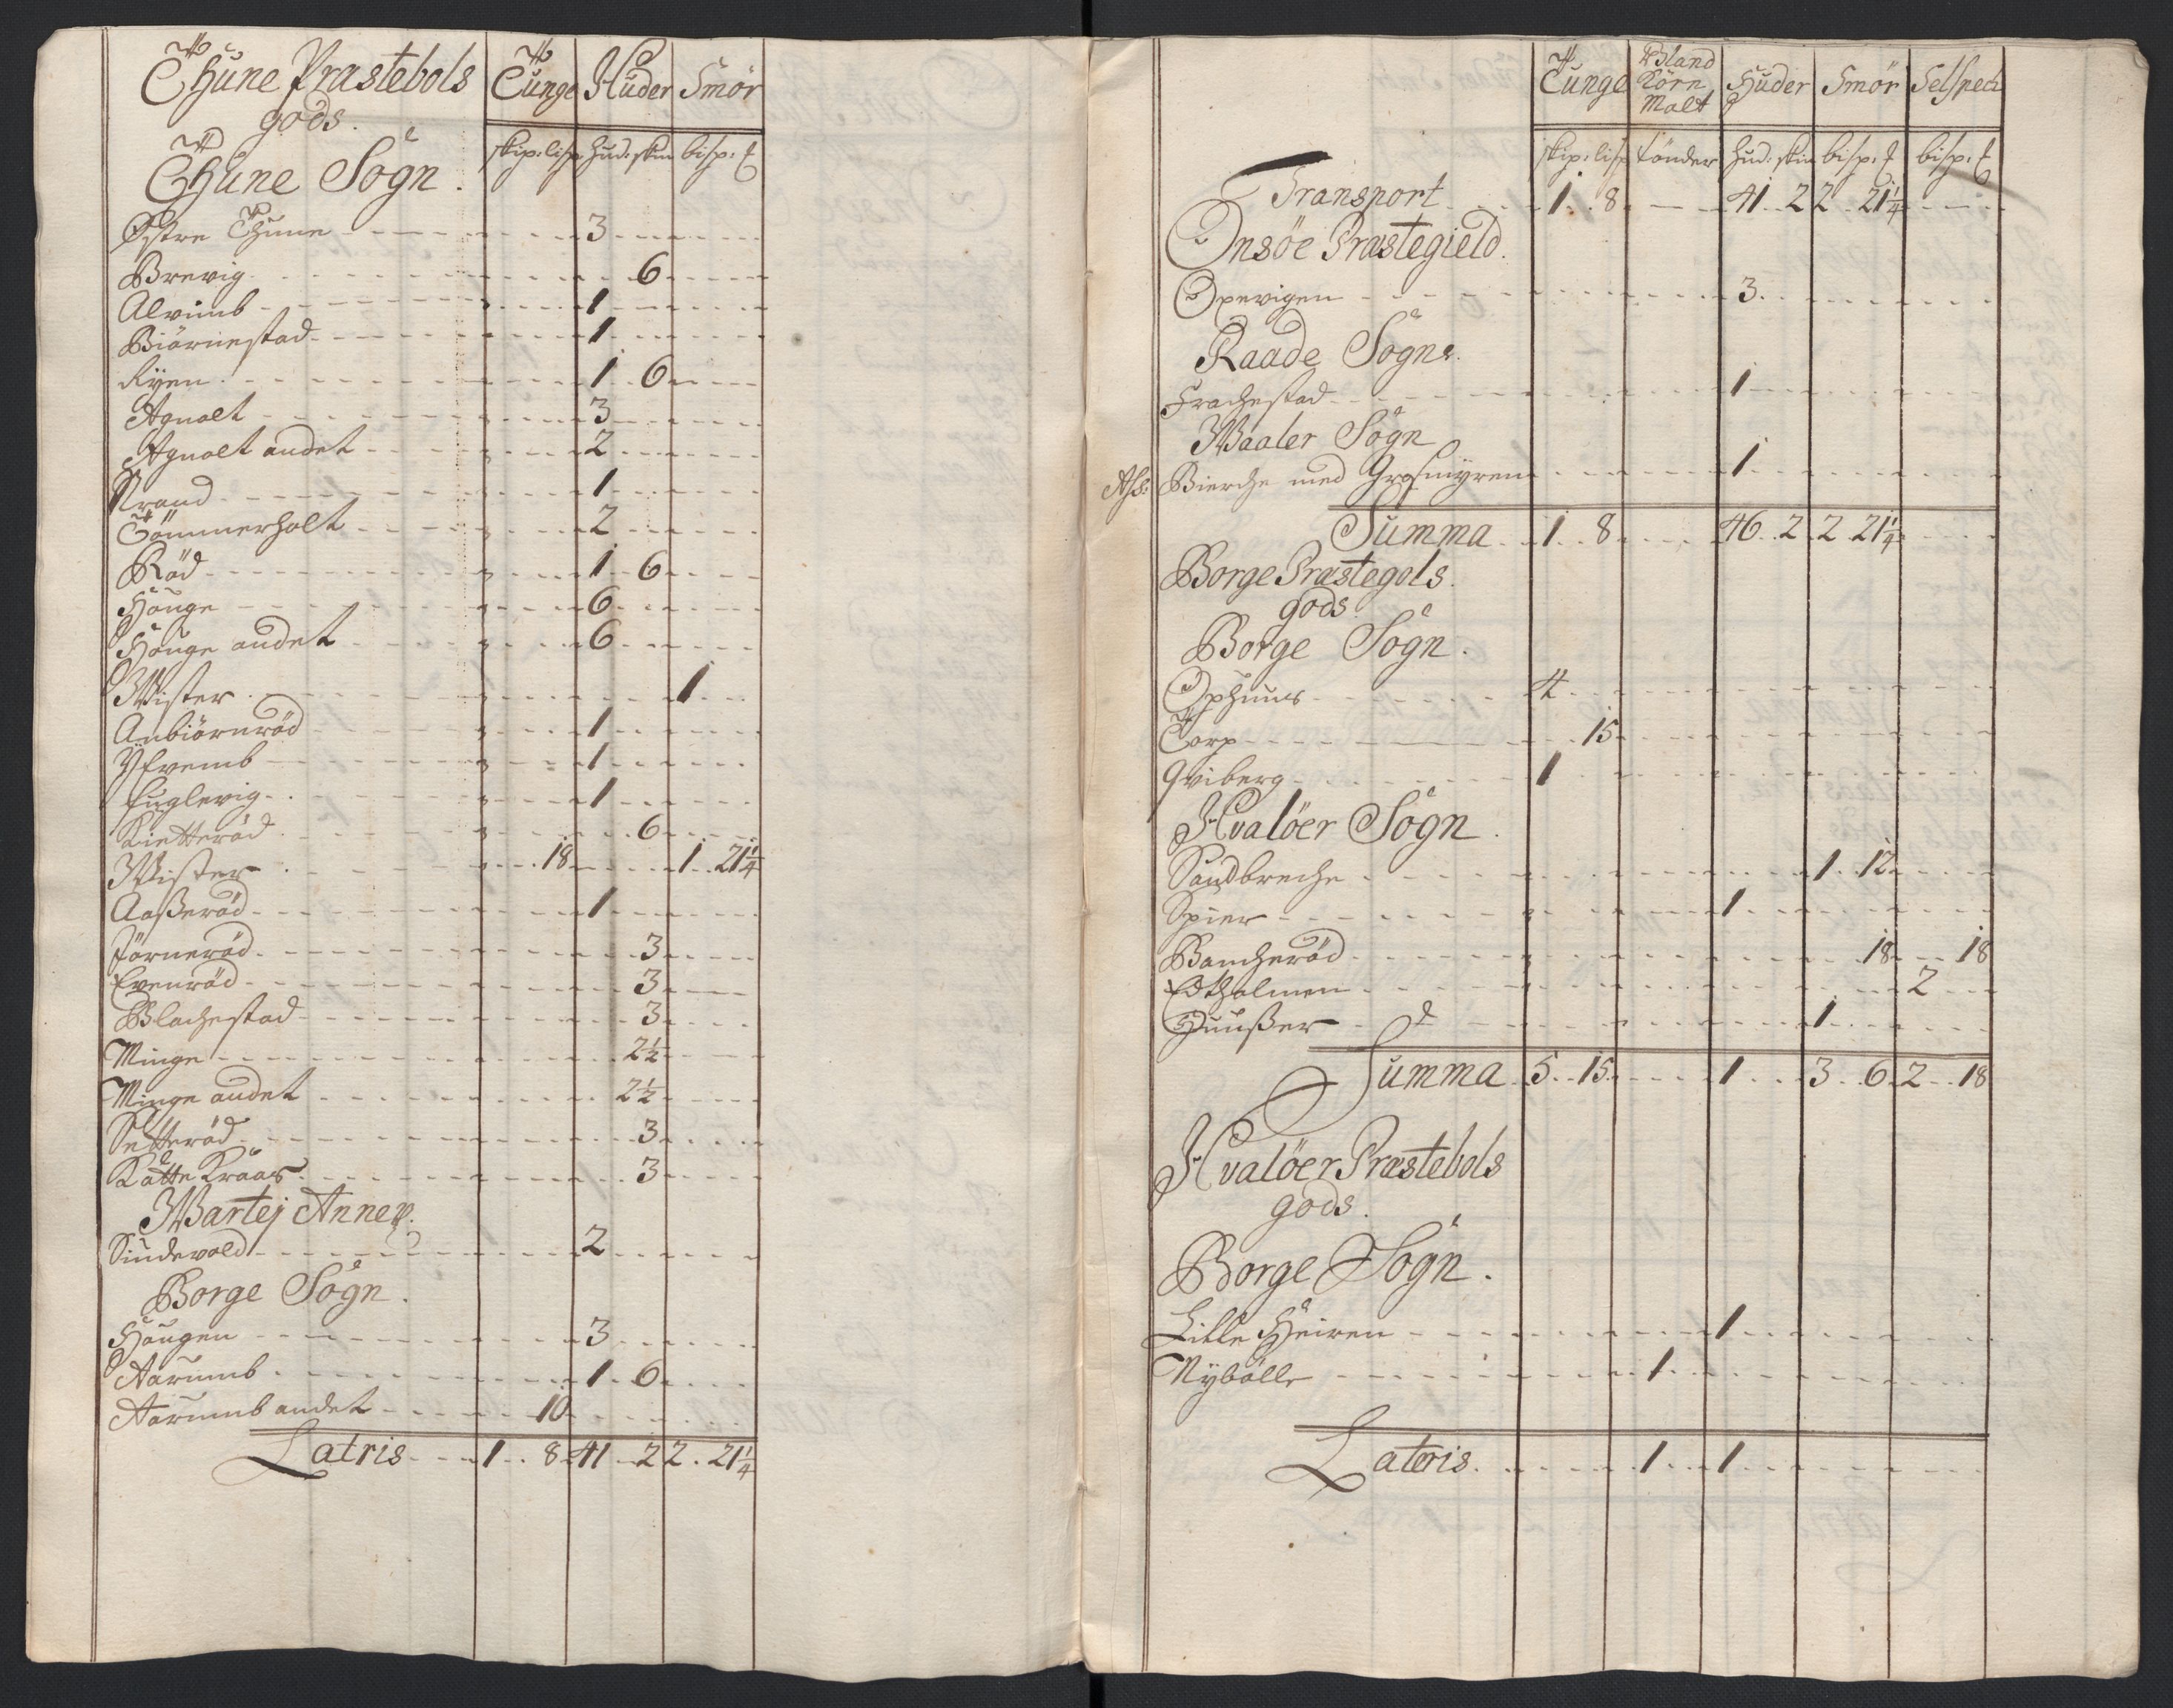 Thune Præstebols Tunge Huder Smør
gods.
skip: lisp hud: skin bisp: ℔
Thune Sogn.
Østre Thune 3
Brevig 6
Alvimb 1
Biørnestad 1
Ryen 1 6
Agnalt 3
Agnalt andet 2
Strand 1
Tømmerholt 2
Rød 1 6
Houge 6
Houge andet 6
Wister 1
Anbiørnrød 1
Yfremb 1
Fuglevig 1
Kietterød 6
Wister 18 1 21¼
Aasserød 1
Førnerød 3
Evenrød 3
Blachestad 3
Minge 2½
Minge andet 2½
Setterød 3
Katte Kraas 3
Wartej Annex.
Sundevold 2
Borge Sogn.
Hougen 3
Aarumb 1 6
Aarumb andet 10
Latris 1 8 41 2 2 21¼
Tunge Bland Korn Malt Huder Smør Selspech
skip: lisp tønder hud: skin bisp: ℔ bisp: ℔
Transport 1 8 41 2 2 21¼
Onsøe Præstegield.
Opevigen 3
Raade Sogne.
Frachestad 1
Waaler Sogn
Afs: Bierche med Grafmyren 1
Summa 1 8 46 2 2 21¼
Borge Præstegols.
gods
Borge Sogn.
Ophuus 4
Torp 15
Qviberg 1
Hvaløer Sogn.
Sandbreche 1 12
Spier 1
Bancherød 18 18
Edtholmen 2
Huusser 1
Summa 5 15 1 3 6 2 18
Hvaløer Præstebols
gods.
Borge Sogn.
Lille Heiren 1
Nybølle 1
Lateris 1 1